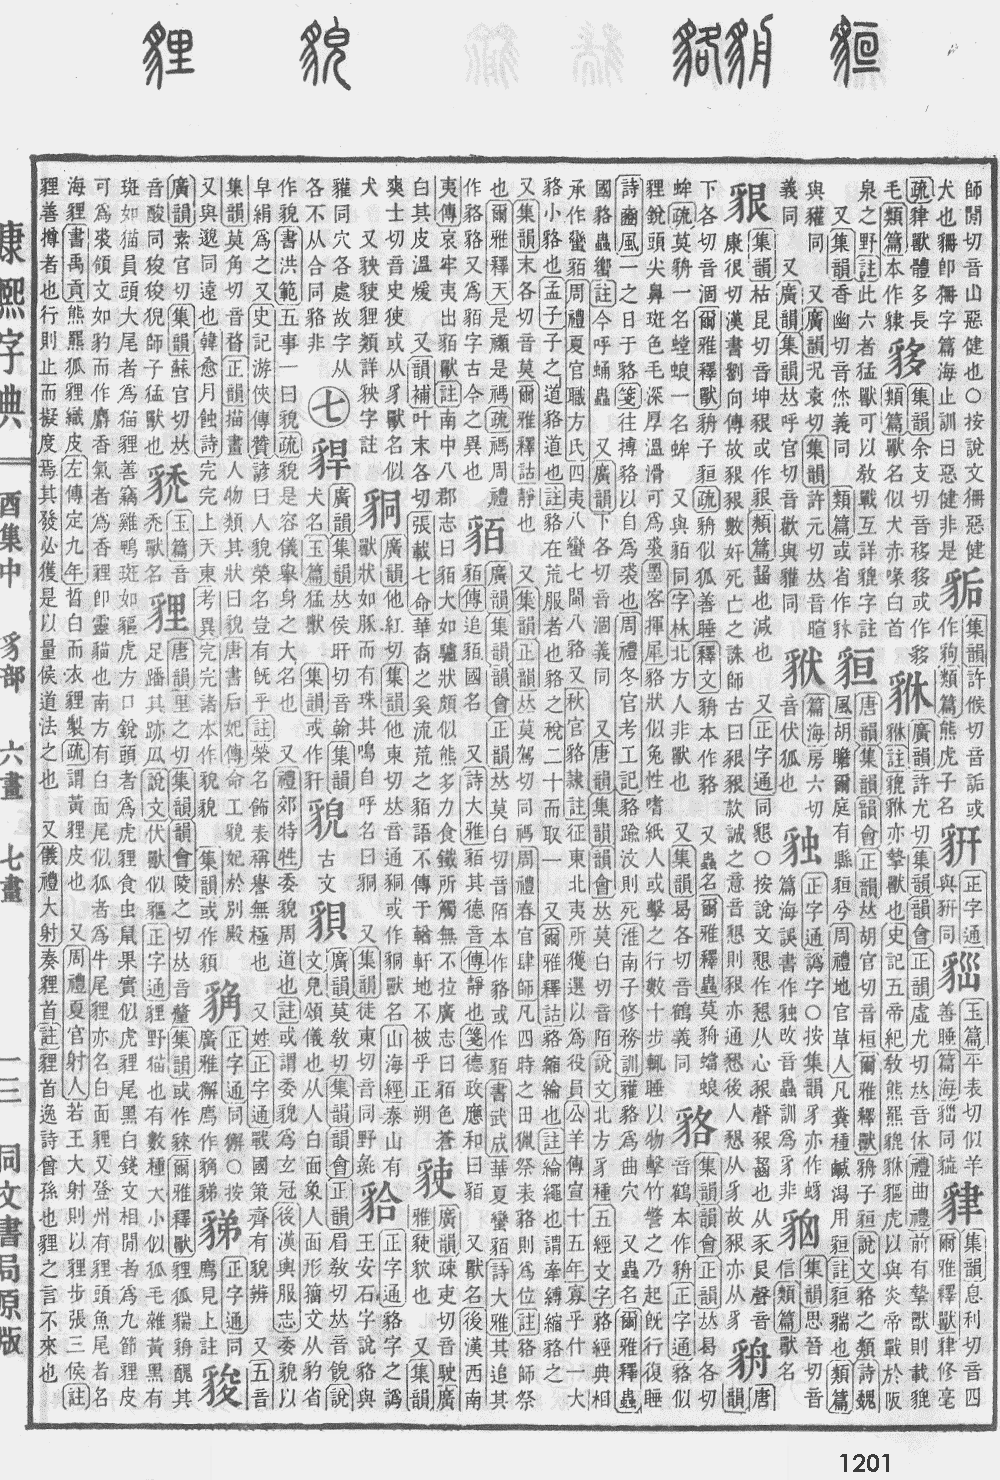 師閒切音山惡健也○按說文狦惡健
犬也狦卽狦字篇海止訓曰惡健非是
垢
集韻許候切音詬或
作狗類篇熊虎子名
豣
正字通
與豣同
貄
集韻息利切音四
爾雅釋獸貄修毫
疏貄獸體多長
毛類篇本作䋛
貅
廣韻許尤切集韻韻會正韻虛尤切𠀤音休禮曲禮前有摯獸則載貔
貅註貔貅亦摯獸也史記五帝紀敎熊羆貔貅貙虎以與炎帝戰於阪
泉之野註此六者猛獸可以敎戰互詳貔字註
又集韻香幽切音烋義同 類篇或省作豼
貆
唐韻集韻韻會正韻𠀤胡官切音桓爾雅釋獸貈子貆說文貉之類詩魏
風胡瞻爾庭有縣貆兮周禮地官草人凡糞種鹹潟用貆註貆貒也類篇
與貛同 又廣韻況袁切集韻許元切𠀤音暄
義同 又廣韻集韻𠀤呼官切音歡與貛同
篇海房六切
音伏狐也
正字通譌字○按集韻豸亦作蛥
篇海誤書作独改音蟲訓爲豸非
集韻思晉切音
信類篇獸名
貇
集韻枯昆切音坤貇或作豤類篇齧也減也 又正字通同懇○按說文懇作懇从心貇聲貇齧也从豕艮聲音
康很切漢書劉向傳故豤豤數奸死亡之誅師古曰豤豤款誠之意音懇則豤亦通懇後人懇从豸故貇亦从豸
貈
唐
韻
下各切音涸爾雅釋獸貈子貆疏貈似狐善睡釋文貈本作貉 又蟲名爾雅釋蟲莫貈蟷蜋
蛑疏莫貈一名螳蜋一名蛑 又與貊同字林北方人非獸也 又集韻曷各切音鶴義同
貉
集韻韻會正韻𠀤曷各切
音鶴本作貈正字通貉似
貍銳頭尖鼻斑色毛深厚溫滑可爲裘墨客揮犀貉狀似兔性嗜紙人或擊之行數十步輒睡以物擊竹警之乃起旣行復睡
詩豳風一之日于貉箋往搏貉以自爲裘也周禮冬官考工記貉踰汶則死淮南子修務訓貛貉爲曲穴 又蟲名爾雅釋蟲
國貉蟲蠁註今呼蛹蟲 又廣韻下各切音涸義同 又唐韻集韻韻會𠀤莫白切音陌說文北方豸種五經文字貉經典相
承作蠻貊周禮夏官職方氏四夷八蠻七閩八貉又秋官貉隸註征東北夷所獲選以爲役員公羊傳宣十五年寡乎什一大
貉小貉也孟子子之道貉道也註貉在荒服者也貉之稅二十而取一 又爾雅釋詁貉縮綸也註綸繩也謂牽縛縮貉之
又集韻末各切音莫爾雅釋詁靜也 又集韻正韻𠀤莫駕切同禡周禮春官肆師凡四時之田獵祭表貉則爲位註貉師祭
也爾雅釋天是禷是禡疏禡周禮
作貉貉又爲貊古今之異也
貊
廣韻集韻韻會正韻𠀤莫白切音陌本作貉或作貊書武成華夏蠻貊詩大雅其追其
貊傳追貊國名 又詩大雅貊其德音傳靜也箋德政應和曰貊 又獸名後漢西南
夷傳哀牢夷出貊獸註南中八郡志曰貊大如驢狀頗似熊多力食鐵所觸無不拉廣志曰貊色蒼
白其皮溫煖 又韻補叶末各切張載七命華裔之夷流荒之貊語不傳于輶軒地不被乎正朔
𧳅
廣韻疎吏切音駛廣
雅𧳅犹也 又集韻
爽士切音史𧳅或从豸獸名似
犬 又豥𧳅貍類詳豥字註
狪
廣韻他紅切集韻他東切𠀤音通狪或作狪獸名山海經泰山有
獸狀如豚而有珠其鳴自呼名曰狪 又集韻徒東切音同野彘
正字通貉字之譌
王安石字說貉與
貛同穴各處故字从
各不从合同貉非
七
䝙
廣韻集韻𠀤侯旰切音翰集韻
犬名玉篇猛獸 集韻或作豻
貌
古文
䫉
廣韻莫敎切集韻韻會正韻眉敎切𠀤音皃說
文皃頌儀也从人白面象人面形籒文从豹省
作貌書洪範五事一曰貌疏貌是容儀舉身之大名也 又禮郊特牲委貌周道也註或謂委貌爲玄冠後漢輿服志委貌以
皁絹爲之又史記游俠傳贊諺曰人貌榮名豈有旣乎註榮名飾表稱譽無極也 又姓正字通戰國策齊有貌辨 又五音
集韻莫角切音暓正韻描畫人物類其狀曰貌唐書后妃傳命工貌妃於別殿
又與邈同遠也韓愈月蝕詩完完上天東考異完完諸本作貌貌 集韻或作䫉
正字通同獬○按
廣雅獬廌作貈
正字通同
廌見上註
狻
廣韻素官切集韻蘇官切𠀤
音酸同狻狻猊師子猛獸也
玉篇音
禿獸名
貍
唐韻里之切集韻韻會陵之切𠀤音釐集韻或作䅘爾雅釋獸貍狐貒貈醜其
足蹯其跡内說文伏獸似貙正字通貍野猫也有數種大小似狐毛雜黃黑有
斑如猫員頭大尾者爲猫貍善竊雞鴨斑如貙虎方口銳頭者爲虎貍食虫鼠果實似虎貍尾黑白錢文相閒者爲九節貍皮
可爲裘領文如豹而作麝香氣者爲香貍卽靈貓也南方有白面尾似狐者爲牛尾貍亦名白面貍又登州有貍頭魚尾者名
海貍書禹貢熊羆狐貍織皮左傳定九年晳白而衣貍製疏謂黃貍皮也 又周禮夏官射人若王大射則以貍步張三侯註
貍善搏者也行則止而擬度焉其發必獲是以量侯道法之也 又儀禮大射奏貍首註貍首逸詩曾孫也貍之言不來也
康熙字典
酉集中 豸部 六畫 七畫
一三 同文書局原版
1201